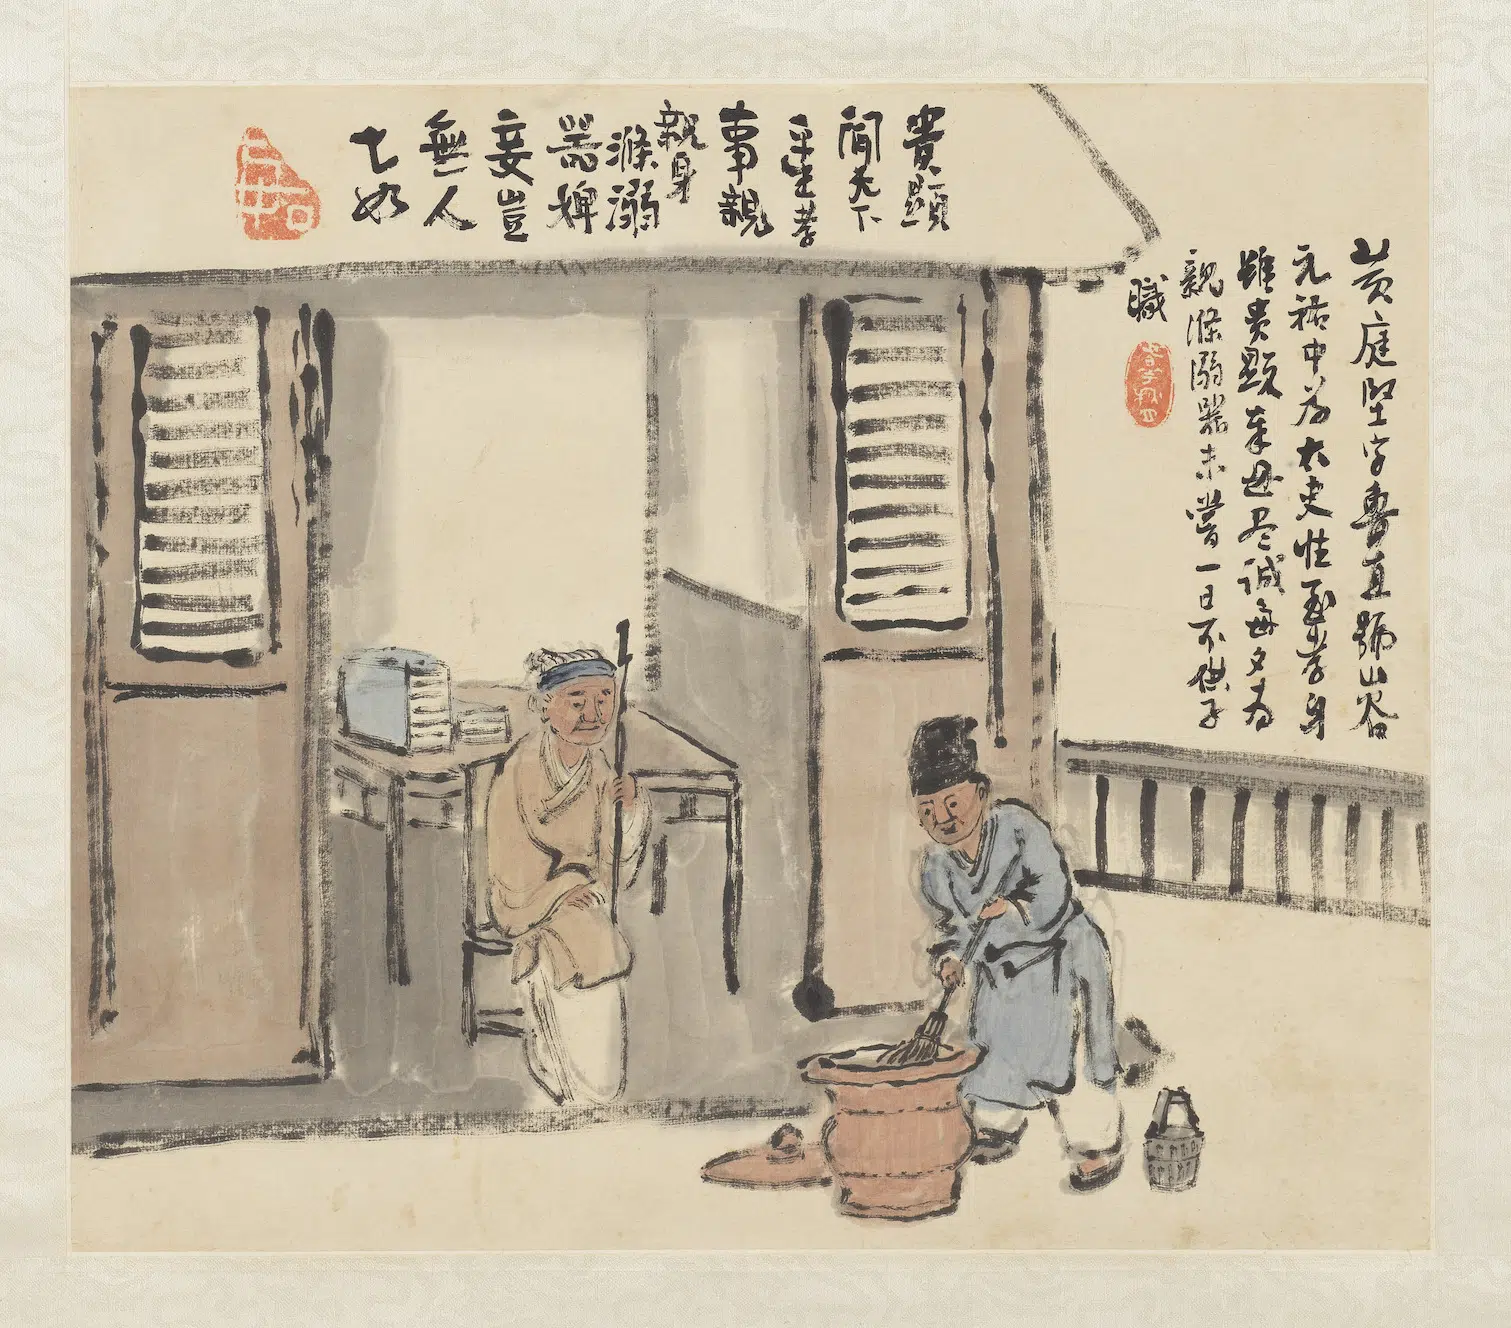 黃庭堅字魯直號山谷
元祐中為太史性至孝身
雖貴顯奉母尽誠每夕為
親滌溺器未嘗一日不供子
職
貴顯
聞天下
平生孝
事親
親身
滌溺
器婢
妾豈
無人
七如